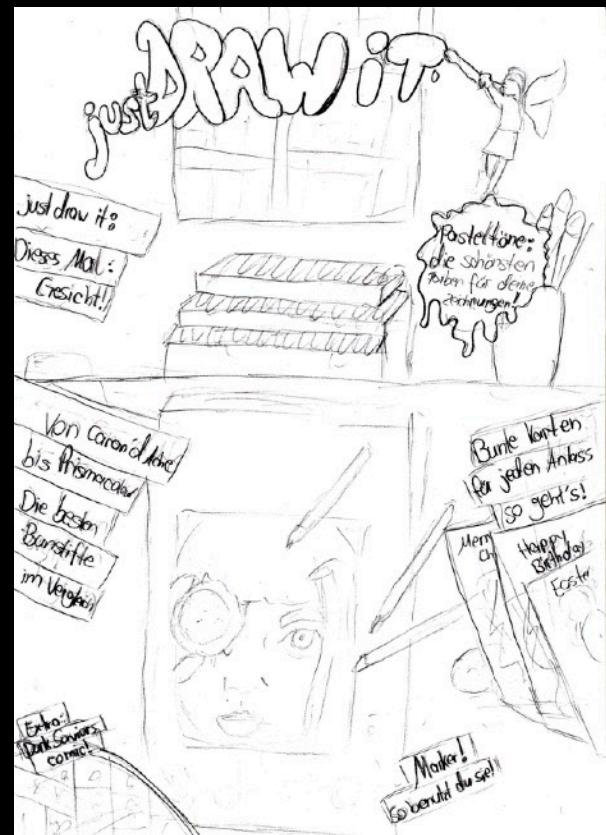 just DRAW iT.
just draw it:
Dieses Mal:
Gesicht!
Pastelltöne:
die schönsten
Farben für deine
Zeichnungen!
Von Caran d'Ache
bis Prismacolor
Die besten
Buntstifte
im Vergleich
Bunte Karten
für jeden Anlass
so geht's!
Merry
Ch
Happy
Birthday
Easter
Extra:
Dark Saviors
comic!
Marker!
so benutzt du sie!